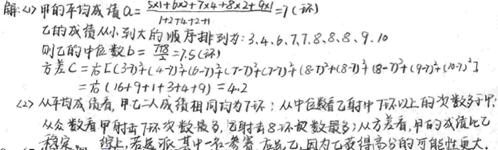 解:(1)甲的平均成绩a=(5×1+6×2+7×4+8×2+9×1)/(1+2+4+2+1)=7(环)
乙的成绩从小到大的顺序排列为:3.4.6.7.7.8.8.8.9.10
则乙的中位数b=(7+8)/2=7.5(环)
方差C=1/10[(3-7)²+(4-7)²+(6-7)²+(7-7)²+(7-7)²+(8-7)²+(8-7)²+(8-7)²+(9-7)²+(10-7)²]
=1/10(16+9+1+3+4+9)=4.2
(2)从平均成绩看,甲乙二人成绩相同均为7环;从中位数看乙射中7环以上的次数多于甲,
从众数看甲射击7环次数最多,乙射击8环次数最多;从方差看,甲的成绩比乙
稳定 综上,若选派其中一名参赛 乙,因为乙获得高分的可能性更大.